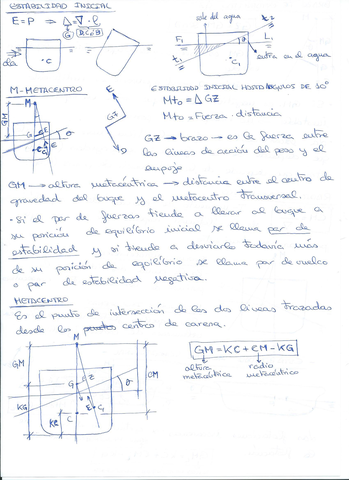 ESTABILIDAD INICIAL
E=P ⇒ Δ=∇·ρ
G
sale del agua
F₁
L₁
θ
C
C₁
entra en el agua
M-METACENTRO
M
GM
G
θ
E
E
GZ
D
ESTABILIDAD INICIAL HASTA ÁNGULOS DE 10°
Mto = Δ GZ
Mto = Fuerza · distancia
GZ → brazo → es la fuerza entre
las líneas de acción del peso y el
empuje
GM → altura metacéntrica → distancia entre el centro de
gravedad del buque y el metacentro transversal.
· Si el par de fuerzas tiende a llevar al buque a
su posición de equilibrio inicial se llama par de
estabilidad y si tiende a desviarlo todavía más
de su posición de equilibrio se llama par de vuelco
o par de estabilidad negativa.
METACENTRO
Es el punto de intersección de las dos líneas trazadas
desde los centro de carena.
M
GM
CM
G
Z
θ
KG
E
C₁
C
KC
K
GM = KC + CM - KG
altura metacéntrica
radio metacéntrico